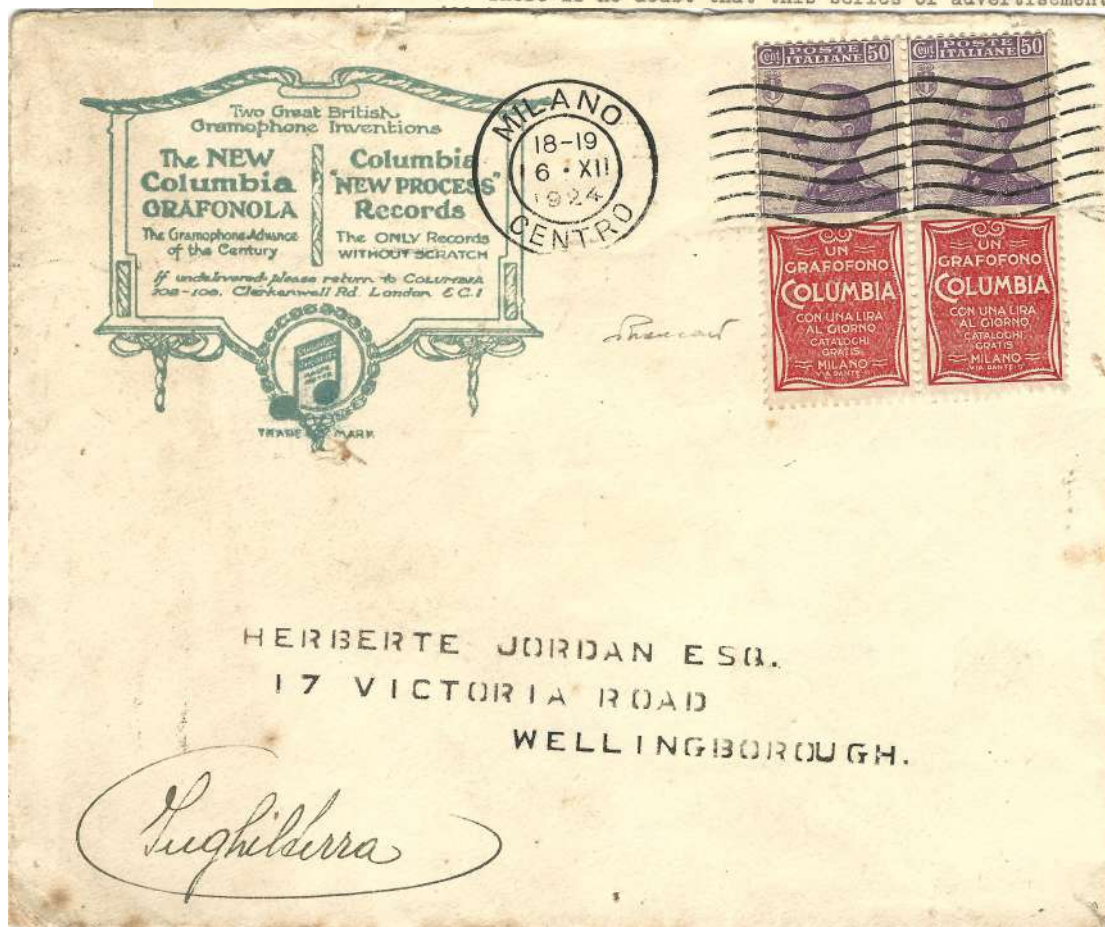 There is no doubt that this series of advertisement
Two Great British
Gramophone Inventions
The NEW
Columbia
GRAFONOLA
The Gramophone Advance
of the Century
Columbia
"NEW PROCESS"
Records
The ONLY Records
WITHOUT SCRATCH
If undelivered please return to COLUMBIA
102-108, Clerkenwell Rd. London E.C.1
TRADE MARK
MILANO
18-19
6 · XII
1924
CENTRO
Cent POSTE ITALIANE 50
Cent POSTE ITALIANE 50
UN
GRAFOFONO
COLUMBIA
CON UNA LIRA
AL GIORNO
CATALOGHI
GRATIS
MILANO
VIA DANTE 9
UN
GRAFOFONO
COLUMBIA
CON UNA LIRA
AL GIORNO
CATALOGHI
GRATIS
MILANO
VIA DANTE 9
HERBERTE JORDAN ESQ.
17 VICTORIA ROAD
WELLINGBOROUGH.
Inghilterra